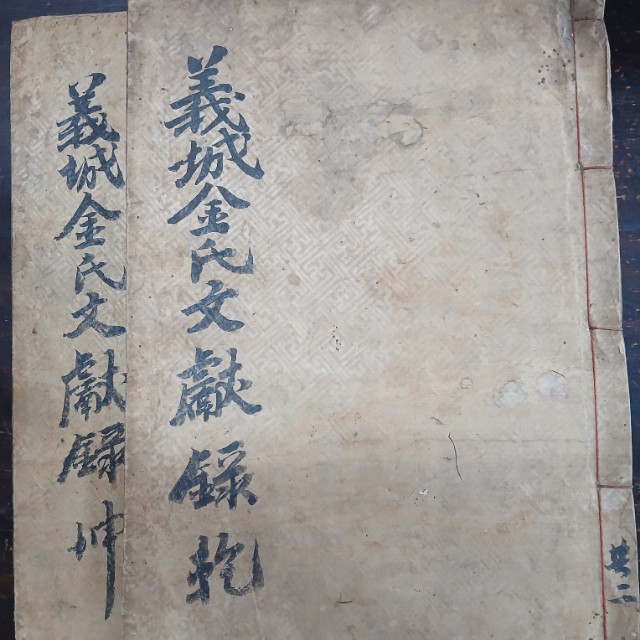 共二
義城金氏文獻録 乾
義城金氏文獻録 坤